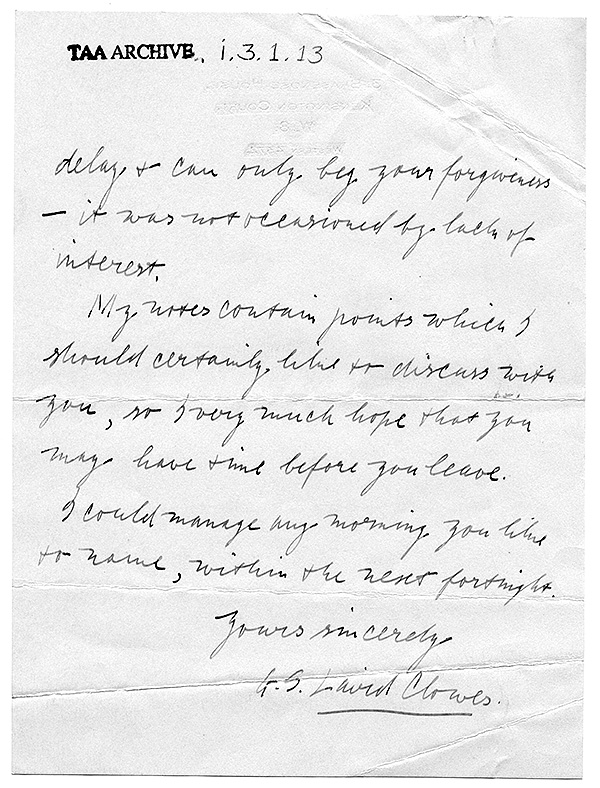 TAA ARCHIVE, i.3.1.13
delay & can only beg your forgiveness
– it was not occasioned by lack of
interest.
My notes contain points which I
should certainly like to discuss with
you, so I very much hope that you
may have time before you leave.
I could manage any morning you like
to name, within the next fortnight.
Yours sincerely
G. S. Laird Clowes.